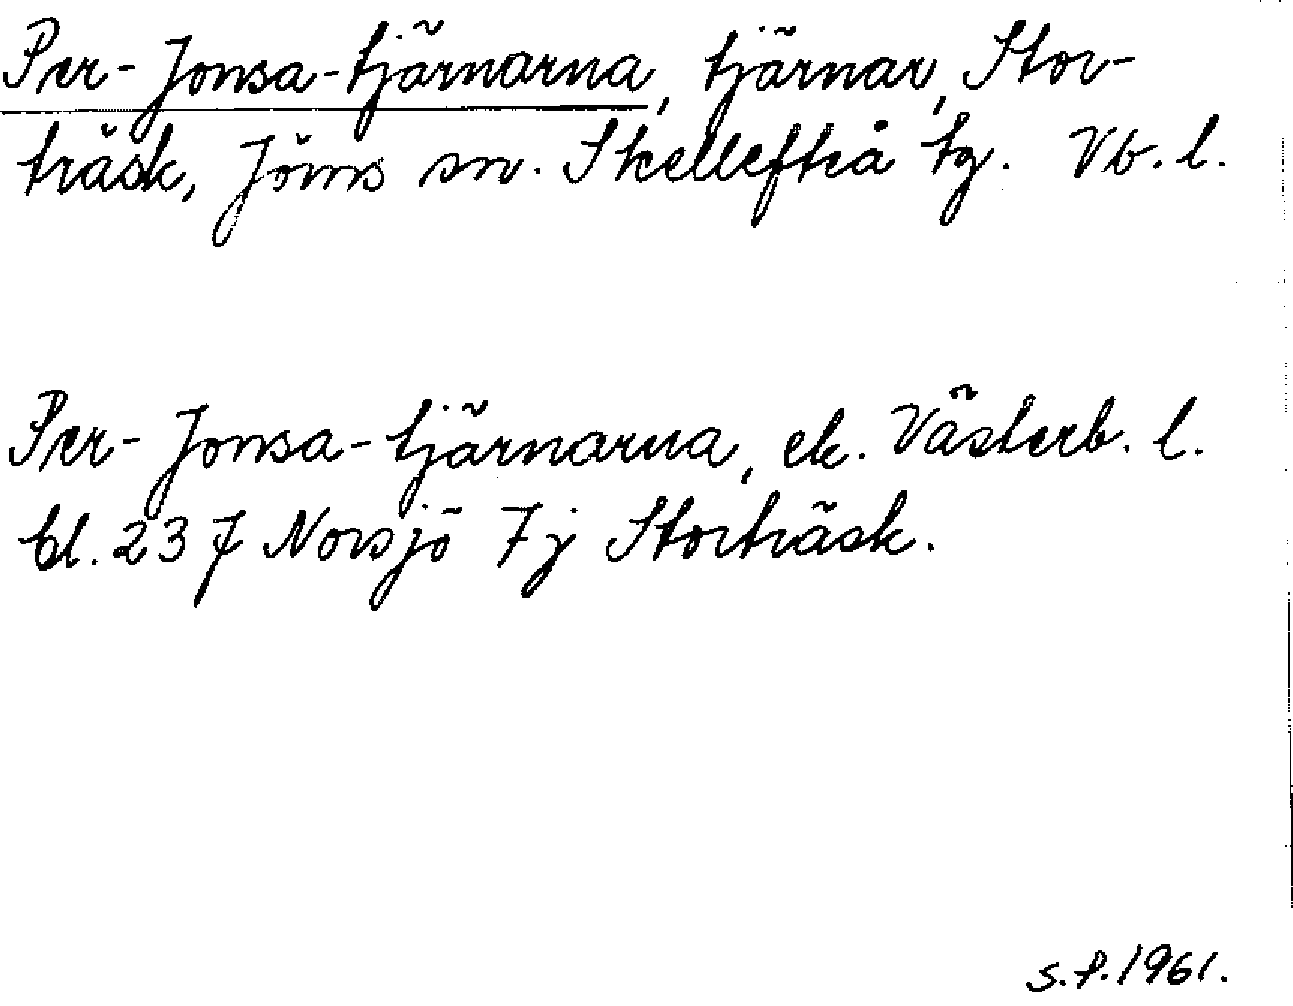 Per-Jonsa-tjärnarna, tjärnar, Stor-
träsk, Jörns sn. Skellefteå tg. Vb. l.
Per-Jonsa-tjärnarna, ek. Västerb. l.
bl. 237 Norsjö 7j Storträsk.
S.P. 1961.